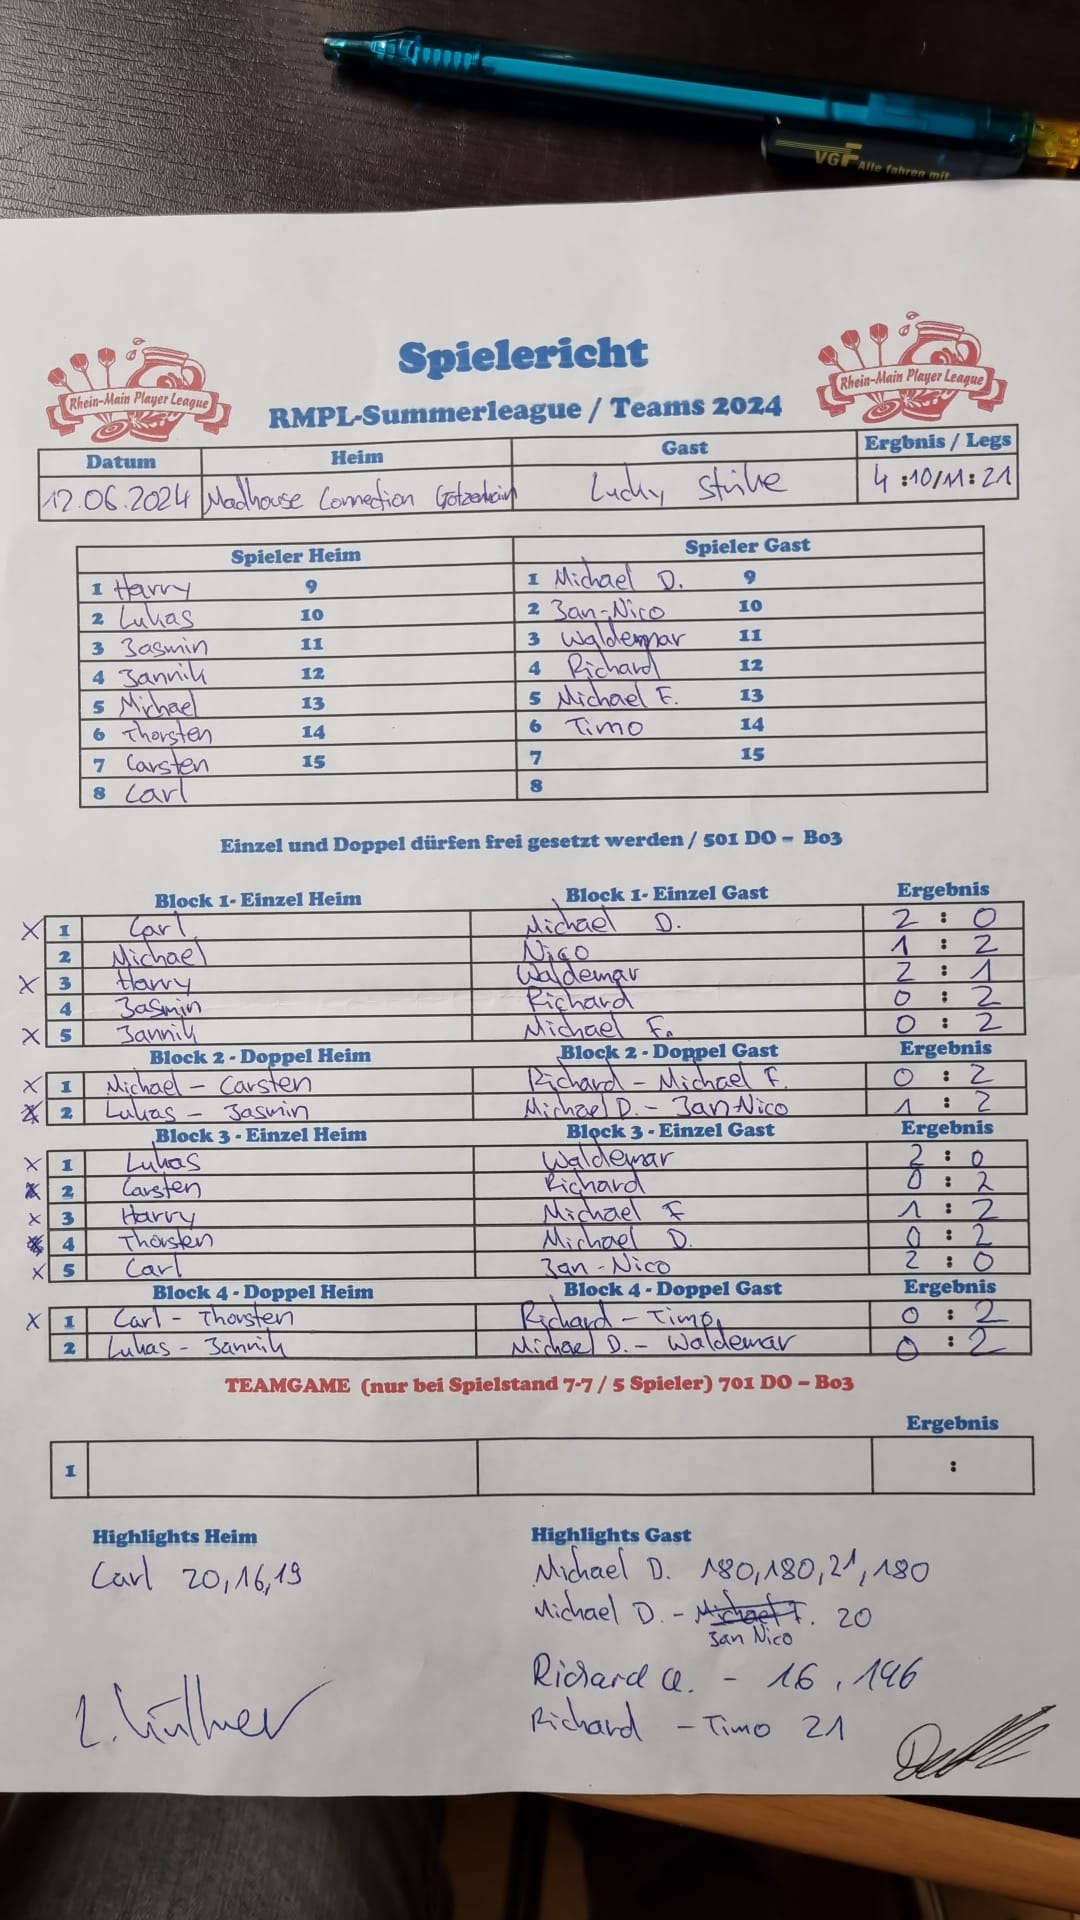 VGF Alle fahren mit
Spielericht
Rhein-Main Player League
Rhein-Main Player League
RMPL-Summerleague / Teams 2024
Datum Heim Gast Ergbnis / Legs
12.06.2024 Madhouse Connection Götzenhain Lucky Strike 4:10/11:21
Spieler Heim Spieler Gast
1 Harry 9 1 Michael D. 9
2 Lukas 10 2 Jan-Nico 10
3 Jasmin 11 3 Waldemar 11
4 Jannik 12 4 Richard 12
5 Michael 13 5 Michael F. 13
6 Thorsten 14 6 Timo 14
7 Carsten 15 7 15
8 Carl 8
Einzel und Doppel dürfen frei gesetzt werden / 501 DO – Bo3
Block 1- Einzel Heim Block 1- Einzel Gast Ergebnis
X 1 Carl Michael D. 2 : 0
2 Michael Nico 1 : 2
X 3 Harry Waldemar 2 : 1
4 Jasmin Richard 0 : 2
X 5 Jannik Michael F. 0 : 2
Block 2 - Doppel Heim Block 2 - Doppel Gast Ergebnis
X 1 Michael – Carsten Richard – Michael F. 0 : 2
X 2 Lukas – Jasmin Michael D. – Jan-Nico 1 : 2
Block 3 - Einzel Heim Block 3 - Einzel Gast Ergebnis
X 1 Lukas Waldemar 2 : 0
X 2 Carsten Richard 0 : 2
X 3 Harry Michael F 1 : 2
X 4 Thorsten Michael D. 0 : 2
X 5 Carl Jan-Nico 2 : 0
Block 4 - Doppel Heim Block 4 - Doppel Gast Ergebnis
X 1 Carl – Thorsten Richard – Timo 0 : 2
2 Lukas – Jannik Michael D. – Waldemar 0 : 2
TEAMGAME (nur bei Spielstand 7-7 / 5 Spieler) 701 DO – Bo3
Ergebnis
1 :
Highlights Heim Highlights Gast
Carl 20,16,19 Michael D. 180,180,21,180
Michael D. – Michael F. 20
Jan Nico
Richard – 16, 146
Richard – Timo 21